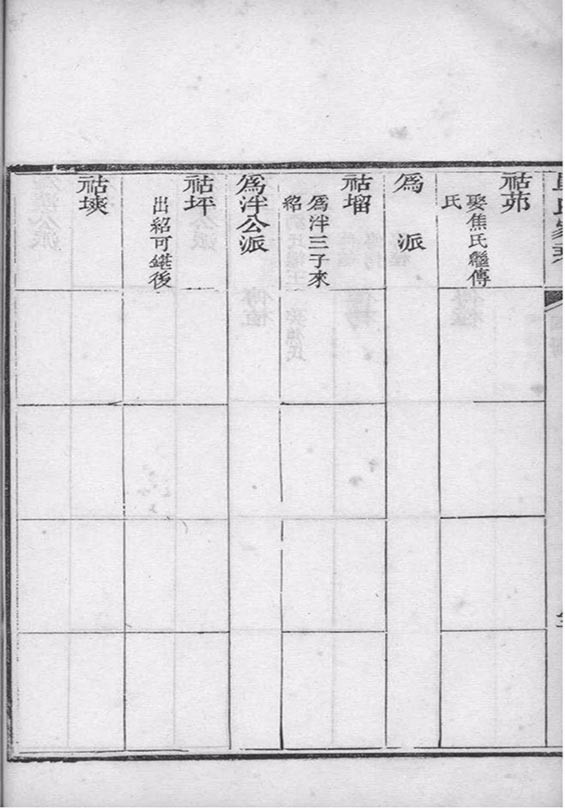 祜茆
娶焦氏繼傳
氏
爲派
祜塯
爲泮三子來
紹
爲泮公派
祜坪
出紹可堪後
祜塽